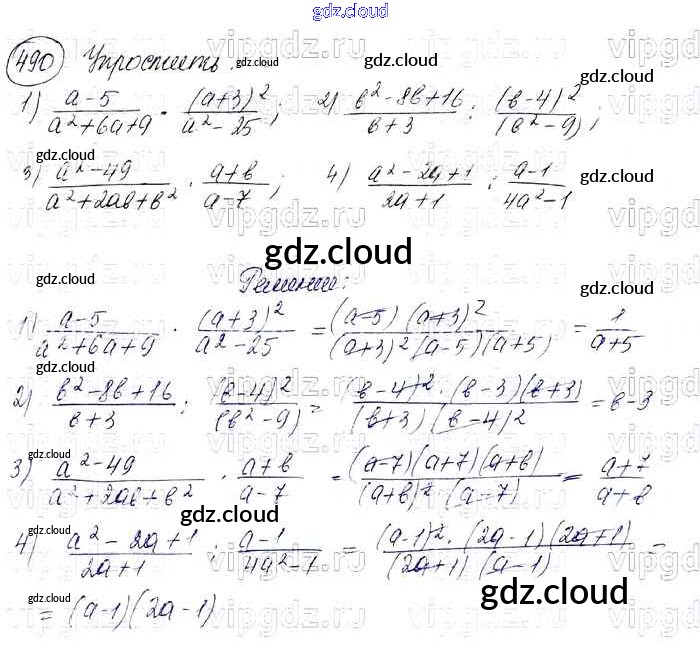 gdz.cloud
490 Упростить.
1) \frac{a-5}{a^2+6a+9} \cdot \frac{(a+3)^2}{a^2-25}; 2) \frac{b^2-8b+16}{b+3} : \frac{(b-4)^2}{(b^2-9)};
3) \frac{a^2-49}{a^2+2ab+b^2} \cdot \frac{a+b}{a-7}; 4) \frac{a^2-2a+1}{2a+1} : \frac{a-1}{4a^2-1}
gdz.cloud
Решение:
1) \frac{a-5}{a^2+6a+9} \cdot \frac{(a+3)^2}{a^2-25} = \frac{(a-5)(a+3)^2}{(a+3)^2(a-5)(a+5)} = \frac{1}{a+5}
2) \frac{b^2-8b+16}{b+3} : \frac{(b-4)^2}{(b^2-9)} = \frac{(b-4)^2 \cdot (b-3)(b+3)}{(b+3)(b-4)^2} = b-3
3) \frac{a^2-49}{a^2+2ab+b^2} \cdot \frac{a+b}{a-7} = \frac{(a-7)(a+7)(a+b)}{(a+b)^2 \cdot (a-7)} = \frac{a+7}{a+b}
4) \frac{a^2-2a+1}{2a+1} : \frac{a-1}{4a^2-1} = \frac{(a-1)^2 \cdot (2a-1)(2a+1)}{(2a+1)(a-1)} =
= (a-1)(2a-1)
gdz.cloud
vipgdz.ru